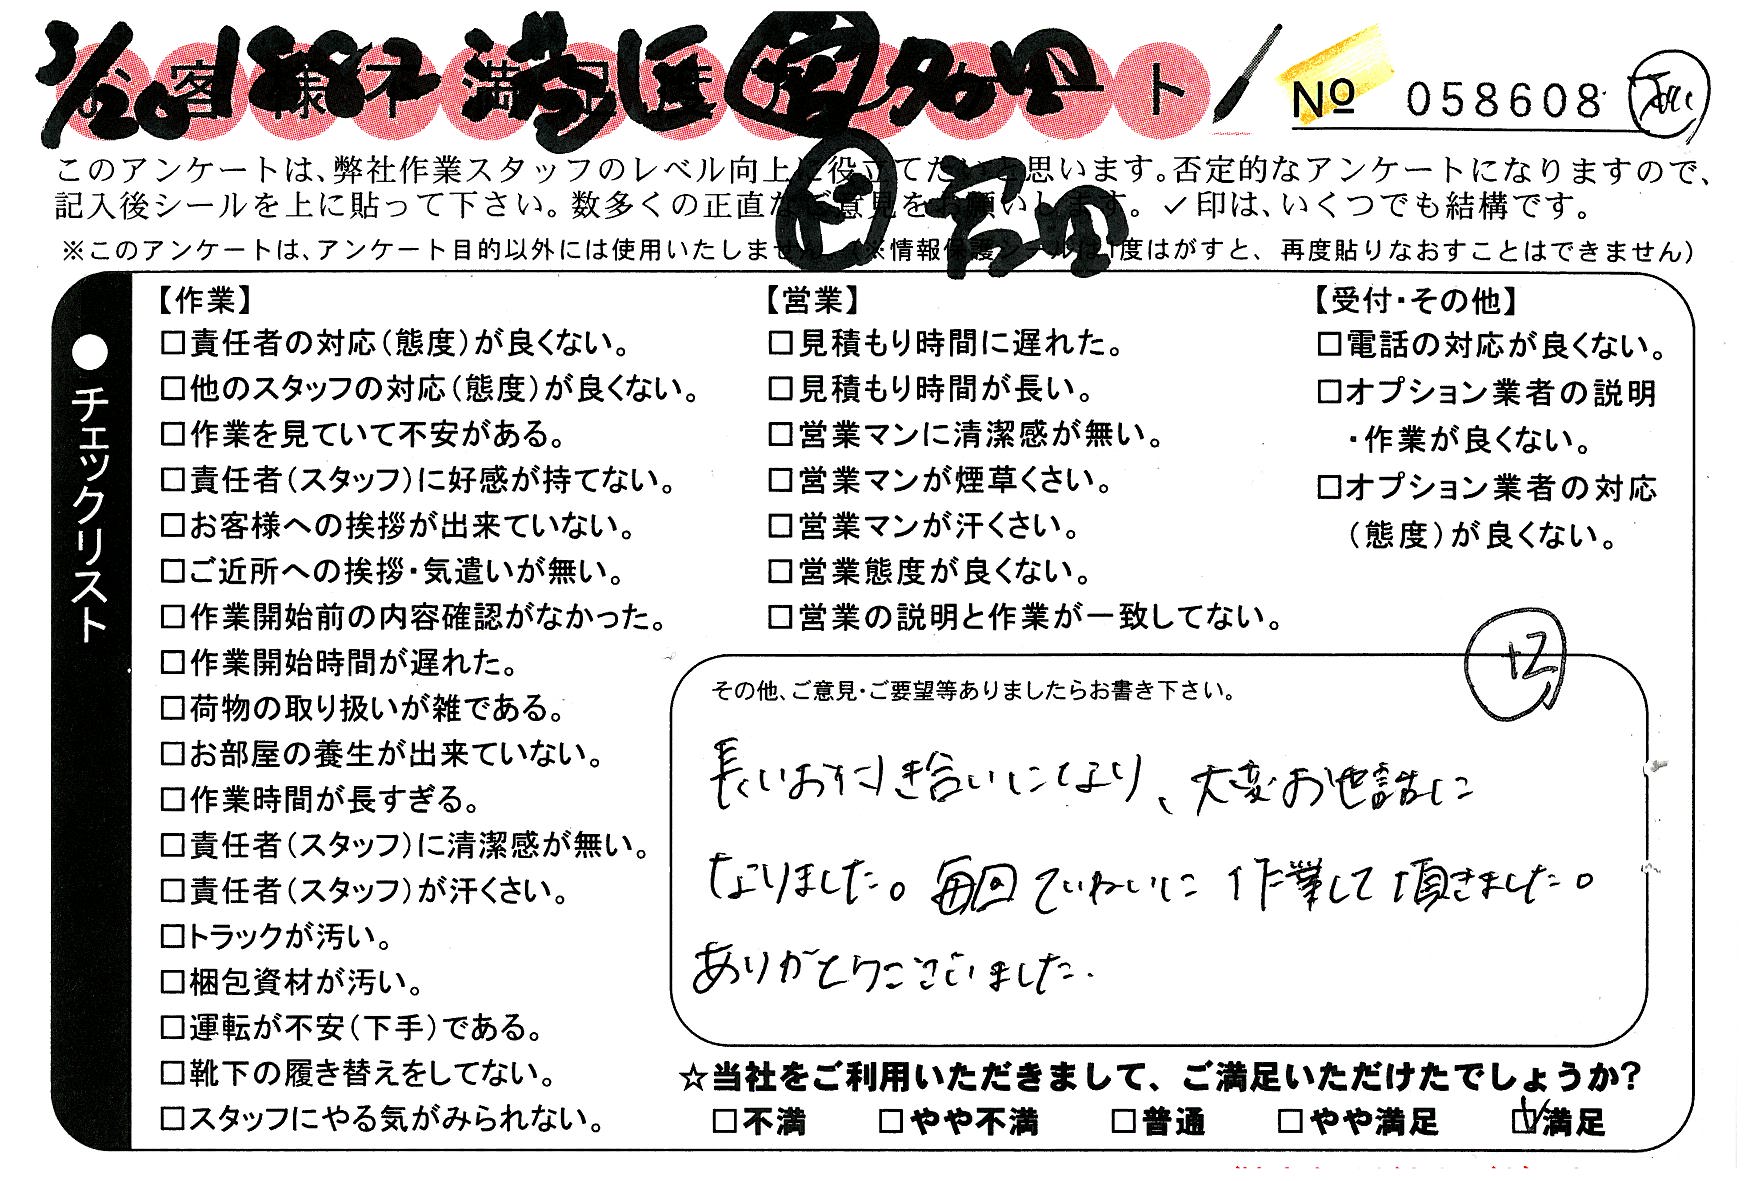 お客様不満足度アンケート
№ 058608
このアンケートは、弊社作業スタッフのレベル向上に役立てたいと思います。否定的なアンケートになりますので、
記入後シールを上に貼って下さい。数多くの正直なご意見をお願いします。✓印は、いくつでも結構です。
※このアンケートは、アンケート目的以外には使用いたしません。(※情報保護シールは1度はがすと、再度貼りなおすことはできません)
●チェックリスト
【作業】
□責任者の対応(態度)が良くない。
□他のスタッフの対応(態度)が良くない。
□作業を見ていて不安がある。
□責任者(スタッフ)に好感が持てない。
□お客様への挨拶が出来ていない。
□ご近所への挨拶・気遣いが無い。
□作業開始前の内容確認がなかった。
□作業開始時間が遅れた。
□荷物の取り扱いが雑である。
□お部屋の養生が出来ていない。
□作業時間が長すぎる。
□責任者(スタッフ)に清潔感が無い。
□責任者(スタッフ)が汗くさい。
□トラックが汚い。
□梱包資材が汚い。
□運転が不安(下手)である。
□靴下の履き替えをしてない。
□スタッフにやる気がみられない。
【営業】
□見積もり時間に遅れた。
□見積もり時間が長い。
□営業マンに清潔感が無い。
□営業マンが煙草くさい。
□営業マンが汗くさい。
□営業態度が良くない。
□営業の説明と作業が一致してない。
【受付・その他】
□電話の対応が良くない。
□オプション業者の説明
・作業が良くない。
□オプション業者の対応
(態度)が良くない。
その他、ご意見・ご要望等ありましたらお書き下さい。
長いお付き合いになり、大変お世話に
なりました。毎回ていねいに作業して頂きました。
ありがとうございました.
☆当社をご利用いただきまして、ご満足いただけたでしょうか?
□不満 □やや不満 □普通 □やや満足 ☑満足